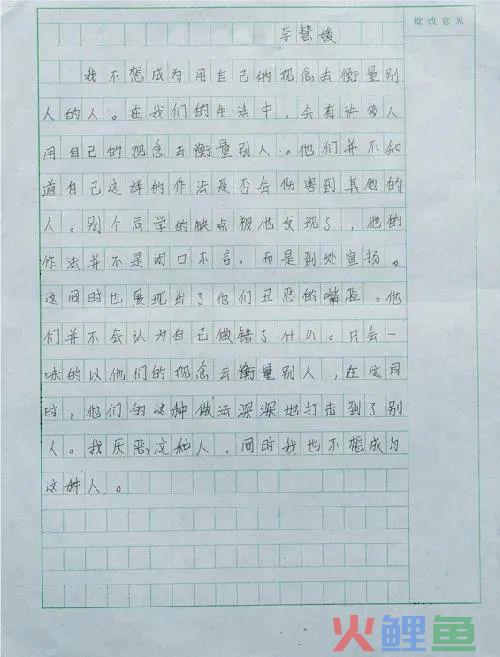 批改意见
李慧媛
我不想成为用自己的观念去衡量别
人的人。在我们的生活中，会有许多人
用自己的观念去衡量别人。他们并不知
道自己这样的作法是否会伤害到其他的
人。别个同学的缺点被他发现了，他的
作法并不是闭口不言，而是到处宣扬。
这同时也展现出了他们丑恶的嘴脸。他
们并不会认为自己做错了什么。只会一
味的以他们的观念去衡量别人，在这同
时，他们的这种做法深深地打击到了别
人。我厌恶这种人，同时我也不想成为
这种人。
火鲤鱼